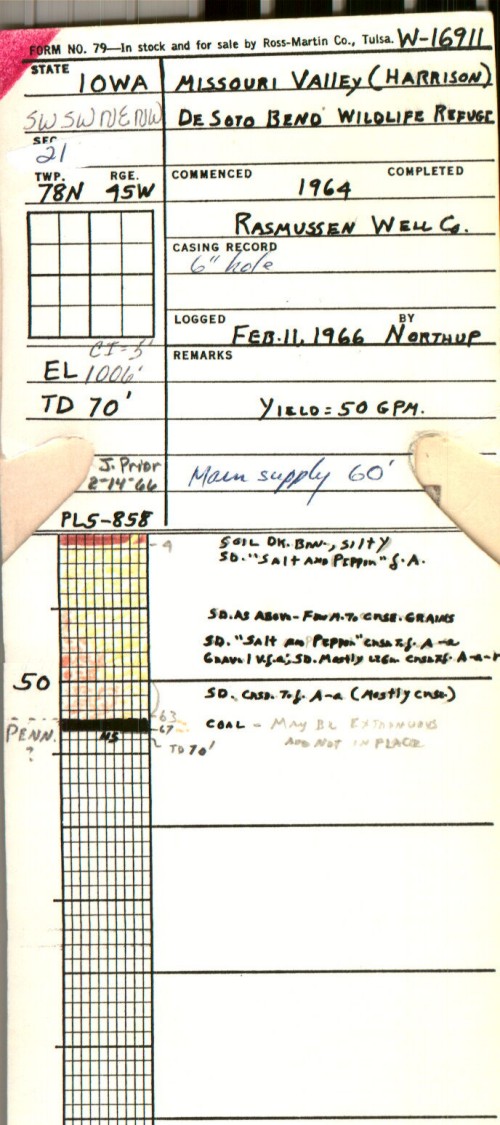 FORM NO. 79—In stock and for sale by Ross-Martin Co., Tulsa. W-16911
STATE IOWA
MISSOURI VALLEY (HARRISON)
SW SW NE NW
DE SOTO BEND WILDLIFE REFUGE
SEC.
21
TWP. RGE.
78N 45W
COMMENCED COMPLETED
1964
RASMUSSEN WELL CO.
CASING RECORD
6" hole
LOGGED BY
FEB. 11, 1966 NORTHUP
CI=5'
EL 1006'
REMARKS
TD 70'
YIELD=50 GPM.
J. Prior
2-14-66
Main supply 60'
PLS-858
-4
SOIL DK. BRN., SILTY
SD. "SALT AND PEPPER" f. A.
SD. AS ABOVE - F. A. TO CRSE. GRAINS
SD. "SALT AND PEPPER" A-a
SD. Mostly
50
SD. CRSE. To f. A-a (Mostly crse.)
-63
PENN.
?
-67
COAL - MAY BE EXTRANEOUS
AND NOT IN PLACE
MS
TD 70'